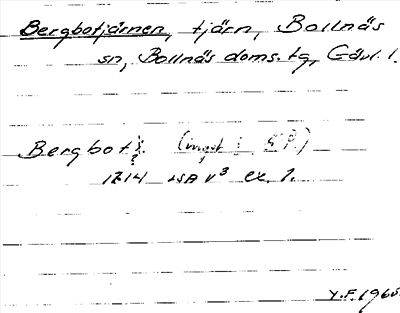 Bergbotjärnen, tjärn, Bollnäs
sn, Bollnäs doms.tg, Gävl. l.
Bergbotj. (inget i SP.)
1714 LSA V³ ex. 1.
Y.F. 1960